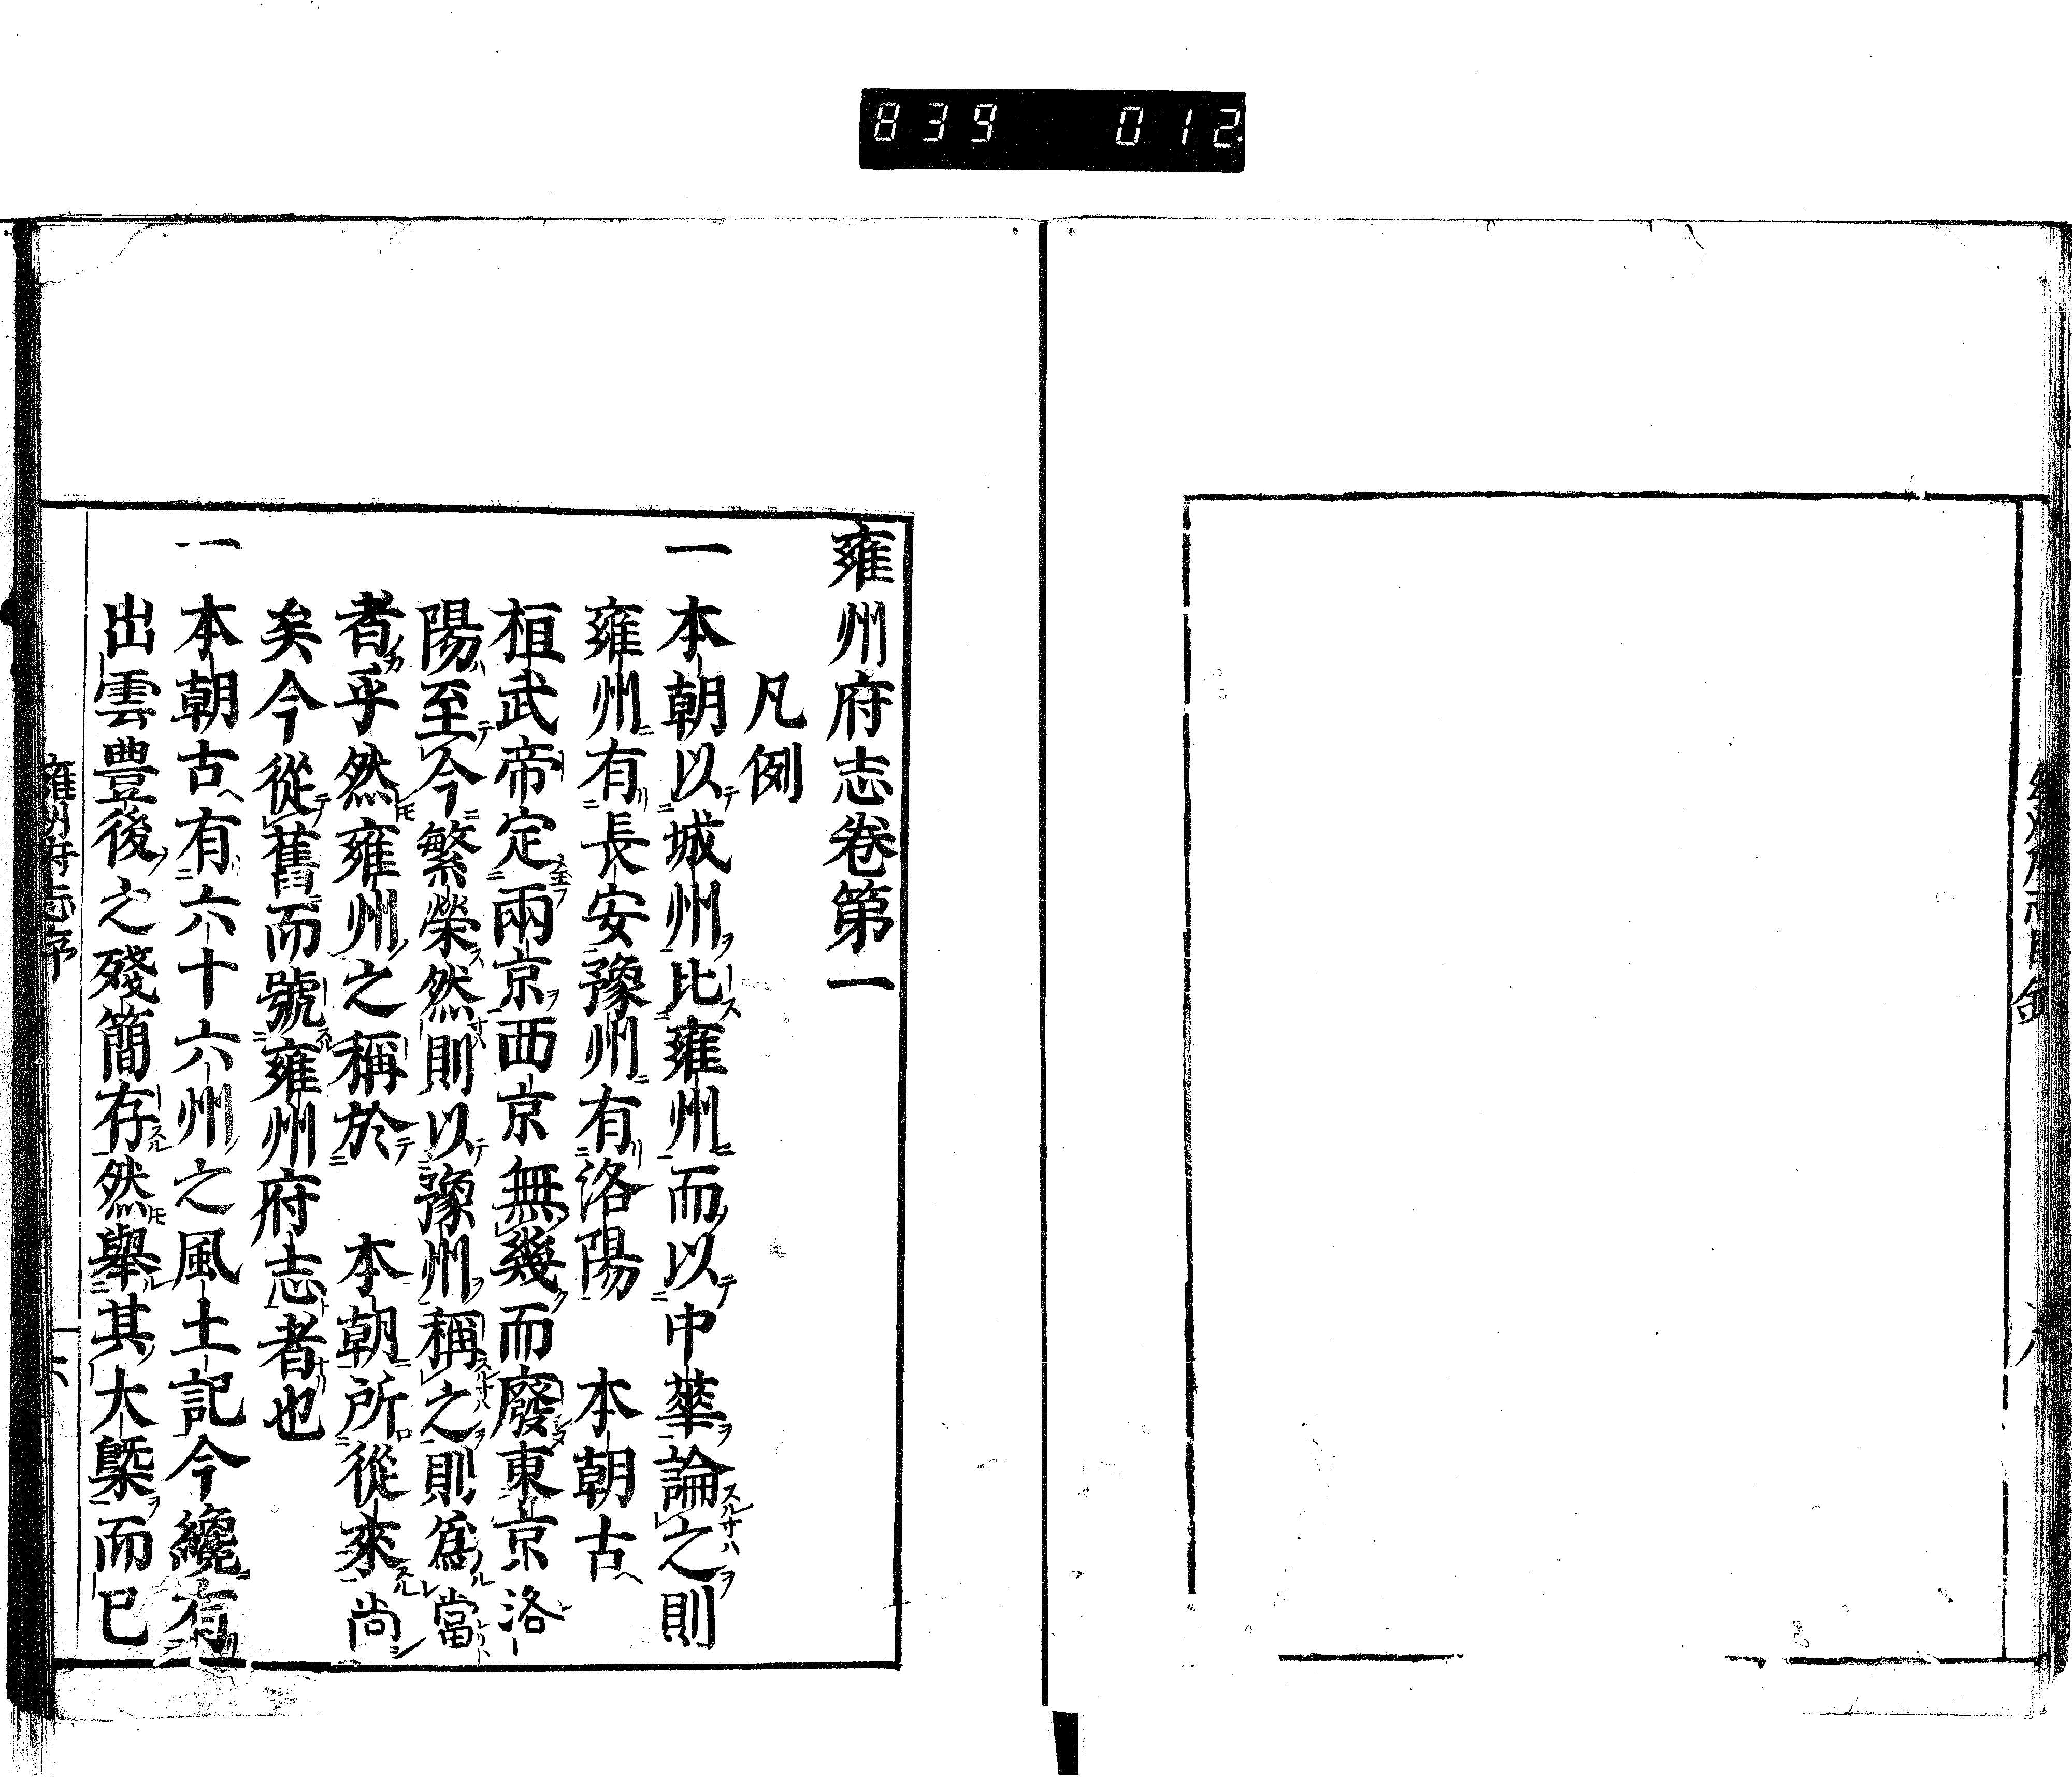 839 012
雍州府志卷第一
凡例
一本朝以城州比雍州而以中華論之則
雍州有長安豫州有洛陽 本朝古
桓武帝定兩京西京無幾而廢東京洛
陽至今繁榮然則以豫州稱之則爲當
者乎然雍州之稱於 本朝所從來尚
矣今從舊而號雍州府志者也
一本朝古有六十六州之風土記今纔有
出雲豊後之殘簡存然舉其大槩而已
雍州府志序